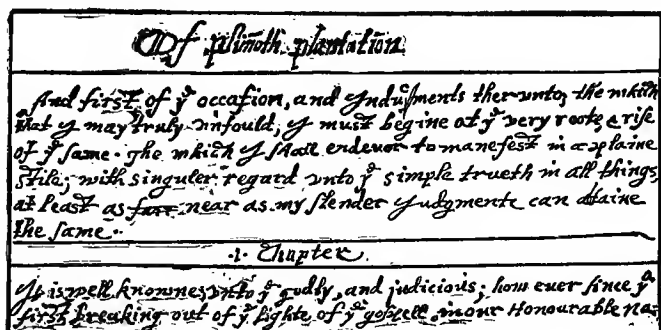 Of plim̃oth plantation
And first of yᵉ occasion, and Jndusments ther vnto; the which
that J may truly vnfould, J must begine at yᵉ very roote, & rise
of yᵉ same. The which J shall endevor to manefest in a plaine
stile; with singuler regard vnto yᵉ simple trueth in all things,
at least as far near as my slender Judgmente can attaine
the same.
.1. Chapter.
Jt is well knowne vnto yᵉ godly, and judicious; how ever since yᵉ
first breaking out of yᵉ lighte of yᵉ gospell, in our Honourable na-